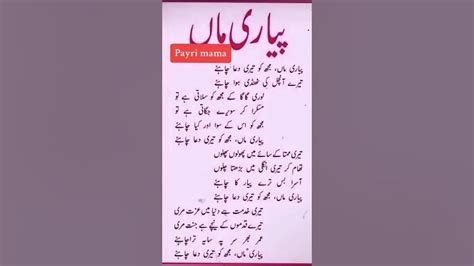 پیاری ماں
Payri mama
پیاری ماں، مجھ کو تیری دعا چاہئے
تیرے آنچل کی ٹھنڈی ہوا چاہئے
لوری گا گا کے مجھ کو سلاتی ہے تو
مسکرا کر سویرے جگاتی ہے تو
مجھ کو اس کے سوا اور کیا چاہئے
پیاری ماں، مجھ کو تیری دعا چاہئے
تیری ممتا کے سائے میں پھولوں پھلوں
تھام کر تیری انگلی میں بڑھتا چلوں
آسرا بس ترے پیار کا چاہئے
پیاری ماں، مجھ کو تیری دعا چاہئے
تیری خدمت سے دنیا میں عزت مری
تیرے قدموں کے نیچے ہے جنت مری
عمر بھر سر پہ سایہ ترا چاہئے
پیاری ماں، مجھ کو تیری دعا چاہئے